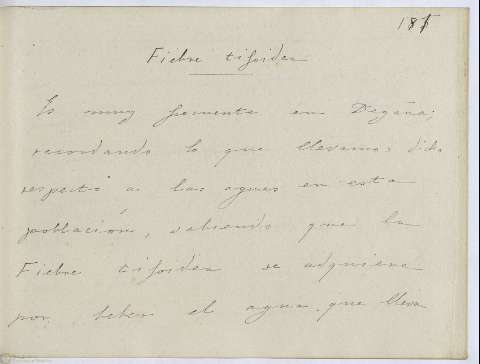 187
Fiebre tifoidea
Es muy frecuente en Degaña;
recordando lo que llevamos dicho
respectó a las aguas en esta
población, sabiendo que la
Fiebre tifoidea se adquiere
por beber el agua que lleva